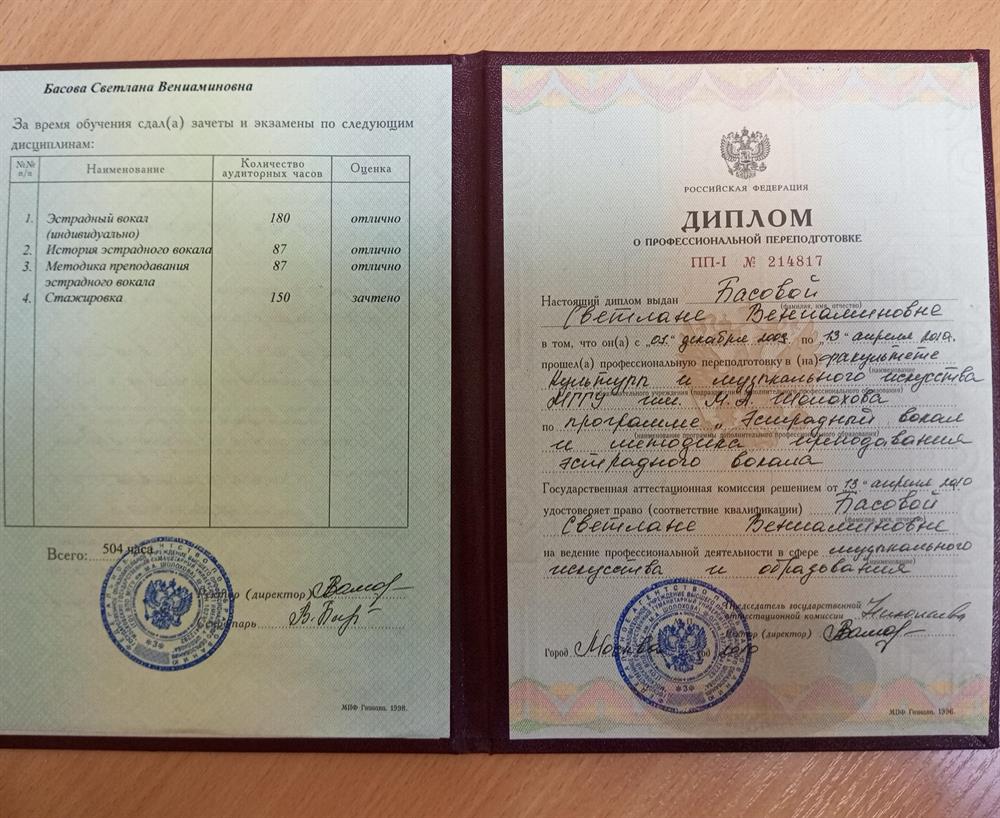 Басова Светлана Вениаминовна
За время обучения сдал(а) зачеты и экзамены по следующим
дисциплинам:
№№ п/п Наименование Количество аудиторных часов Оценка
1. Эстрадный вокал 180 отлично
(индивидуально)
2. История эстрадного вокала 87 отлично
3. Методика преподавания 87 отлично
эстрадного вокала
4. Стажировка 150 зачтено
Всего: 504 часа
Ректор (директор)
Секретарь
МПФ Гознака. 1998.
РОССИЙСКАЯ ФЕДЕРАЦИЯ
ДИПЛОМ
О ПРОФЕССИОНАЛЬНОЙ ПЕРЕПОДГОТОВКЕ
ПП-I № 214817
Настоящий диплом выдан Басовой
(фамилия, имя, отчество)
Светлане Вениаминовне
в том, что он(а) с „01“ декабря 2009 по „13“ апреля 2010г.
прошел(а) профессиональную переподготовку в (на) факультете
(наименование
культуры и музыкального искусства
образовательного учреждения (подразделения) дополнительного профессионального образования)
МГГУ им. М.А. Шолохова
по программе „Эстрадный вокал
(наименование программы дополнительного профессионального образования)
и методика преподавания
эстрадного вокала
Государственная аттестационная комиссия решением от „13“ апреля 2010
удостоверяет право (соответствие квалификации) Басовой
(фамилия, имя, отчество)
Светлане Вениаминовне
на ведение профессиональной деятельности в сфере музыкального
(наименование)
искусства и образования
Председатель государственной
аттестационной комиссии Николаева
Ректор (директор)
Город Москва год 2010
МПФ Гознака. 1996.